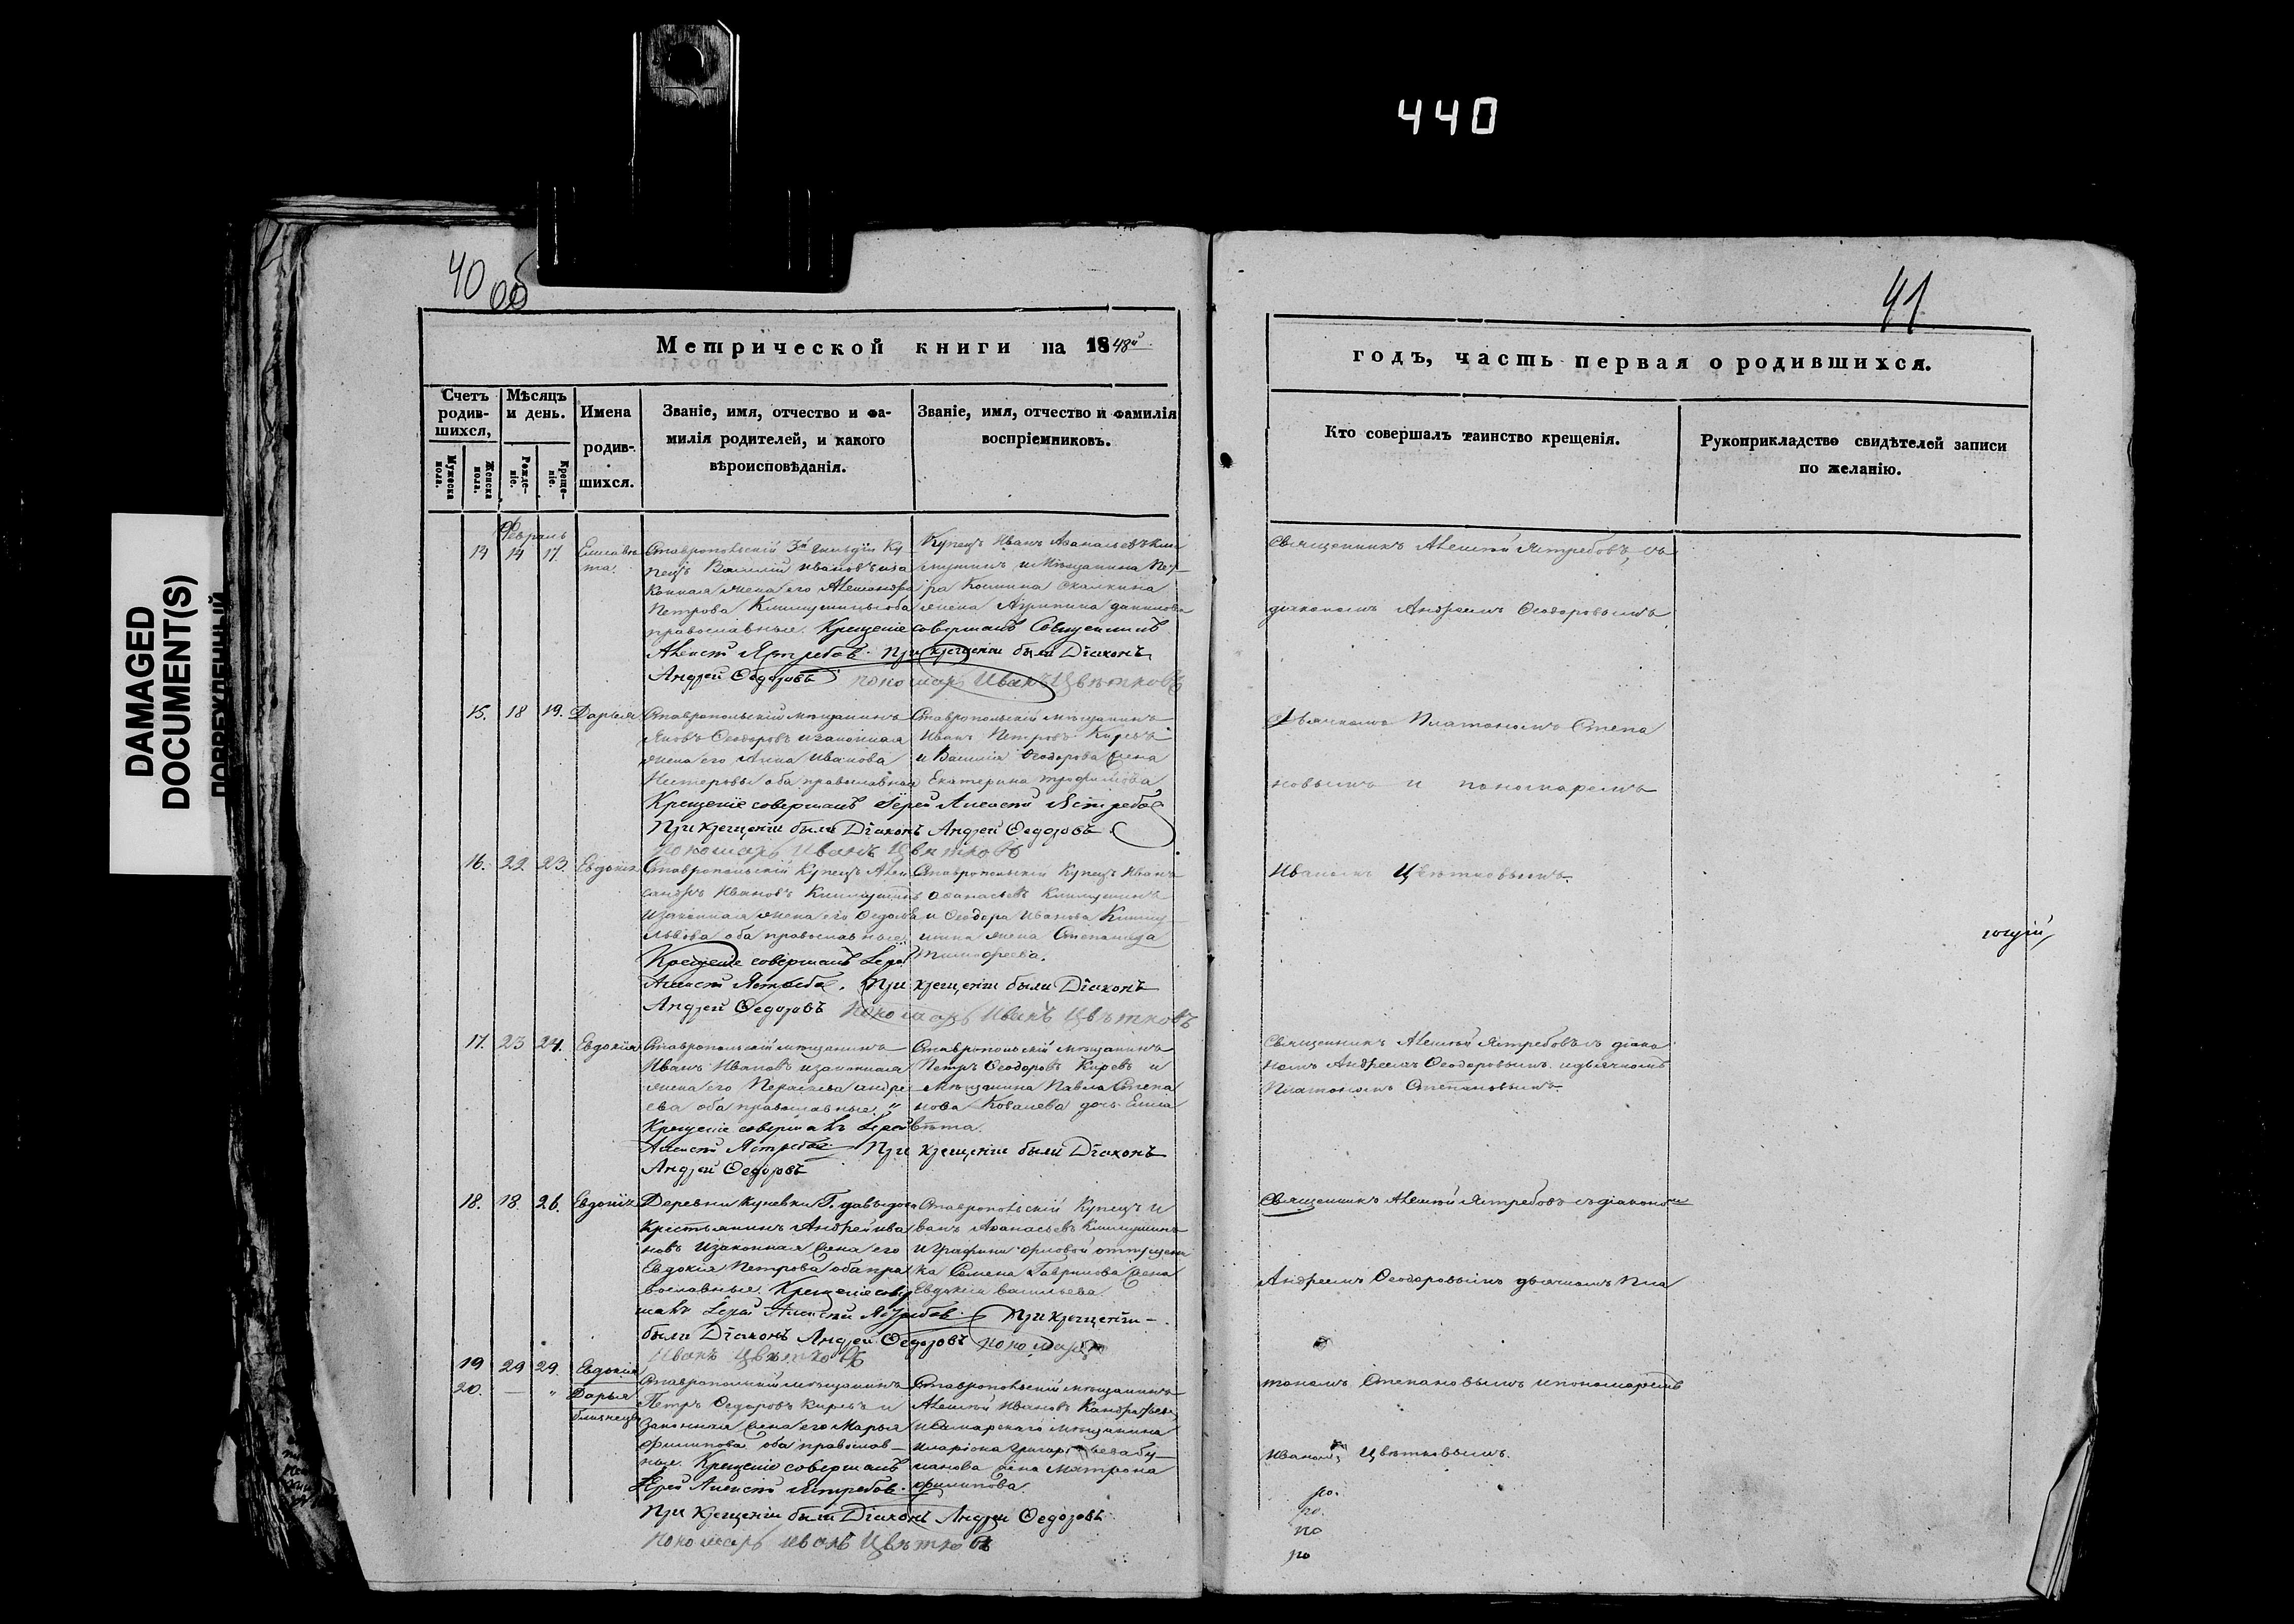 440
DAMAGED
DOCUMENT(S)
40 об
41
Метрической книги на 1848й
годъ, часть первая о родившихся.
Счетъ родив-шихся,
Мужеска пола.
Женска пола.
Мѣсяцъ и день.
Рожде-ніе.
Креще-ніе.
Имена родив-шихся.
Званіе, имя, отчество и фа-
милія родителей, и какого
вѣроисповѣданія.
Званіе, имя, отчество и фамилія
воспріемниковъ.
Кто совершалъ таинство крещенія.
Рукоприкладство свидѣтелей записи
по желанію.
Февраль
14 14 17. Елисаве
та.
Ставропольскій 3й гильдіи Ку
пецъ Василій Ивановъ иза
конная жена его Александра
Петрова оба
православные. Крещеніе совершалъ Священникъ
Алексѣй Ястребовъ. При крещеніи были Діаконъ
Андрей Ѳедоровъ пономарь Иванъ Цвѣтковъ
Купецъ Иванъ Аѳанасьевъ Кли
мушинъ и Мѣщанина
жена Агрипина данилова
Священникъ Алексѣй Ястребовъ, съ
діакономъ Андреемъ Ѳеодоровымъ
15. 18 19. Дарья
Ставропольскій мѣщанинъ
Яковъ Ѳеодоровъ изаконная
жена его Анна Иванова
Нестеровы оба православная
Крещеніе совершалъ Іерей Алексѣй Ястребовъ
При крещеніи были Діаконъ Андрей Ѳедоровъ
Пономарь Иванъ Цвѣтковъ
Ставропольскій мѣщанинъ
Иванъ Петровъ Киревъ
и Василія Ѳеодорова жена
Екатерина трофимова
Дьячкомъ Платономъ Степа
новымъ и пономаремъ
Иваномъ Цвѣтковымъ.
16. 22. 23. Евдокія
Ставропольскій Купецъ Алек
сандръ Ивановъ Климушинъ
изаконная жена его
Львова оба православные
Крещеніе совершалъ Іерей
Алексѣй Ястребовъ. При крещеніи были Діаконъ
Андрей Ѳедоровъ Пономарь Иванъ Цвѣтковъ
Ставропольскій Купецъ Иванъ
Аѳанасьевъ Климушинъ
и Ѳеодора Иванова Климу
шина жена Степанида
Тимофеева.
17. 23 24. Евдокія
Ставропольскій мѣщанинъ
Иванъ Ивановъ изаконная
жена его Параскева андре
ева оба православные. "
Крещеніе совершалъ Іерей
Алексѣй Ястребовъ. При крещеніи были Діаконъ
Андрей Ѳедоровъ
Ставропольскій мѣщанинъ
Петръ Ѳеодоровъ Киревъ и
Мѣщанина Павла Степа
нова Ковалева дочь Елиса
вѣта.
Священникъ Алексѣй Ястребовъ съ діако
номъ Андреемъ Ѳеодоровымъ идьячкомъ
Платономъ Степановымъ
18. 18. 26. Евдокія
Деревни Куневки Г. давыдова
Крестьянинъ Андрей Ива
новъ изаконная жена его
Евдокія Петрова оба пра
вославные. Крещеніе совер
шалъ Іерей Алексѣй Ястребовъ. При крещеніи
были Діаконъ Андрей Ѳедоровъ пономарь
Иванъ Цвѣтковъ
Ставропольскій Купецъ И
ванъ Аѳанасьевъ Климушинъ
и Графини Орловой отпущен
ка Семена Гаврилова жена
Евдокія васильева
Священникъ Алексѣй Ястребовъ съ діакономъ
Андреемъ Ѳеодоровымъ дьячкомъ Пла
тономъ Степановымъ ипономаремъ
Иваномъ Цвѣтковымъ.
19 29 29. Евдокія
20. — " Дарья
близнецы
Ставропольскій мѣщанинъ
Петръ Ѳедоровъ Киревъ и
Законная жена его Марья
Филипова оба православ-
ные. Крещеніе совершалъ
Іерей Алексѣй Ястребовъ.
При крещеніи были Діаконъ Андрей Ѳедоровъ
Пономарь иванъ Цвѣтковъ
Ставропольскій мѣщанинъ
Алексѣй Ивановъ
и Самарскаго мѣщанина
иларіона
жена Матрона
филипова.
по.
по.
по
по